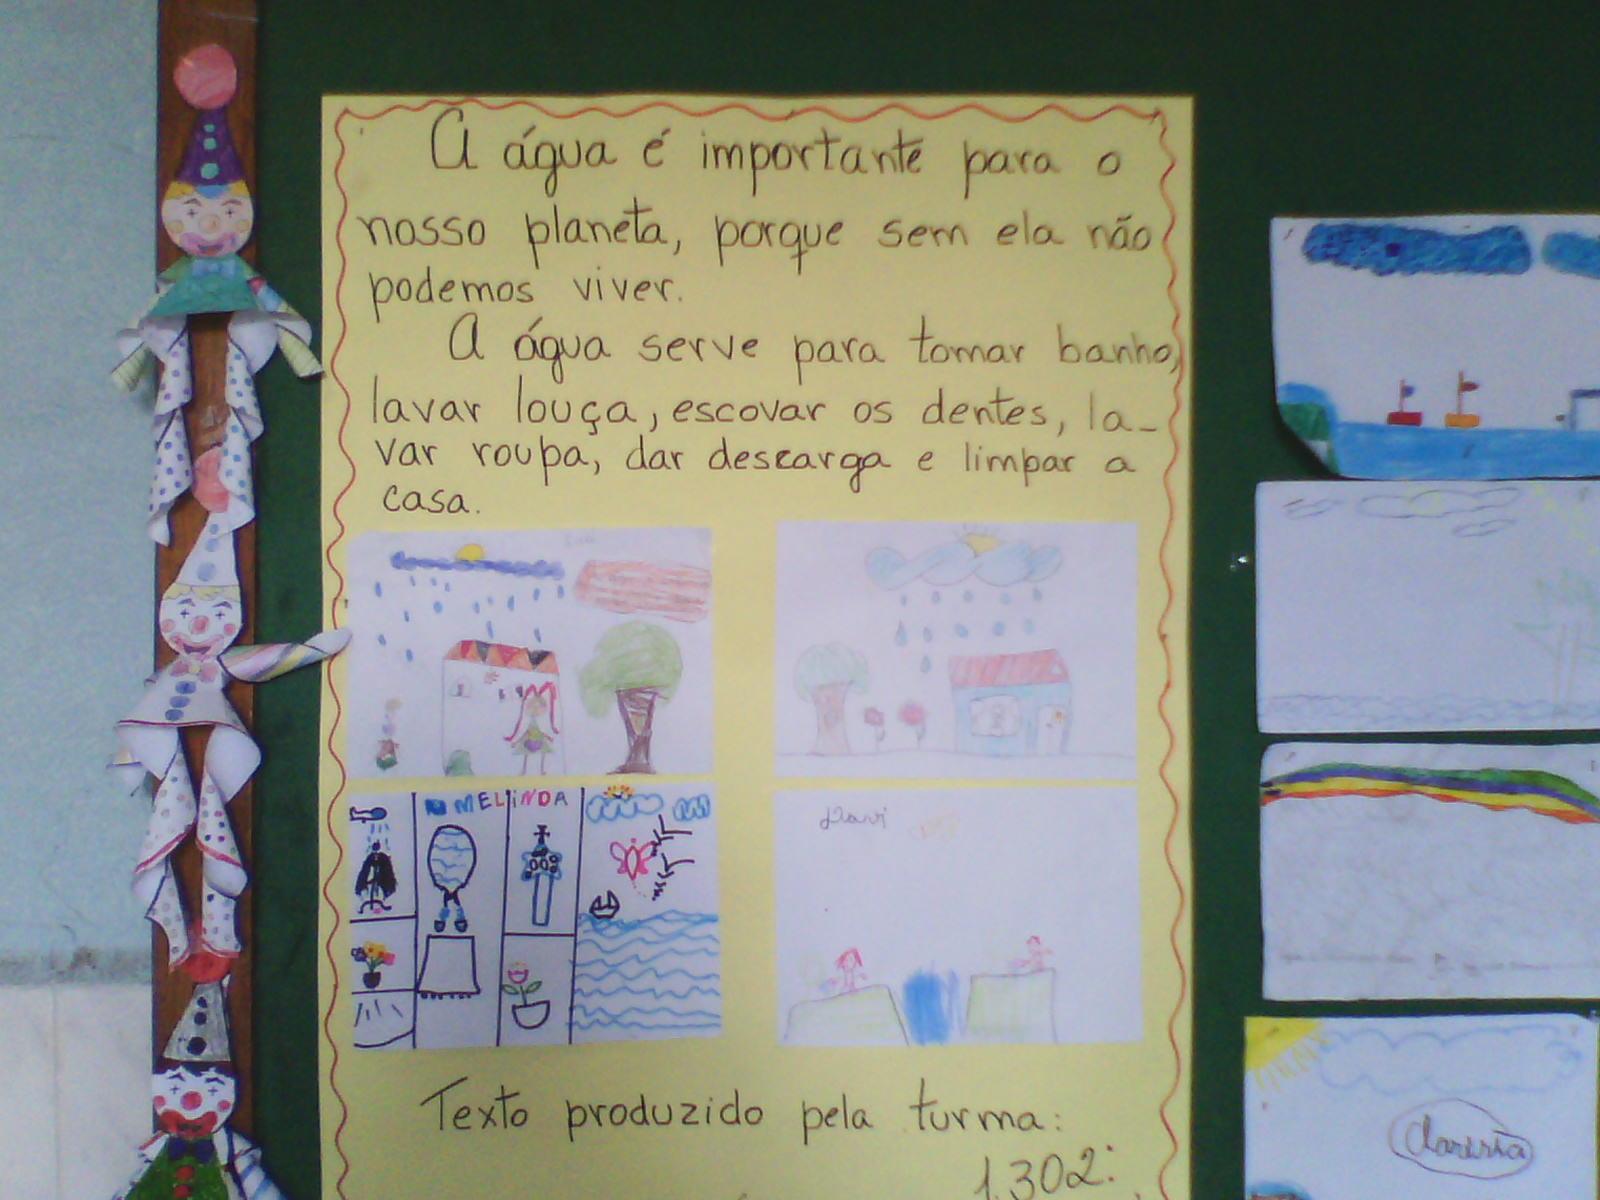 A água é importante para o
nosso planeta, porque sem ela não
podemos viver.
A água serve para tomar banho,
lavar louça, escovar os dentes, la-
var roupa, dar descarga e limpar a
casa.
MELINDA
Davi
Texto produzido pela turma:
1.302: